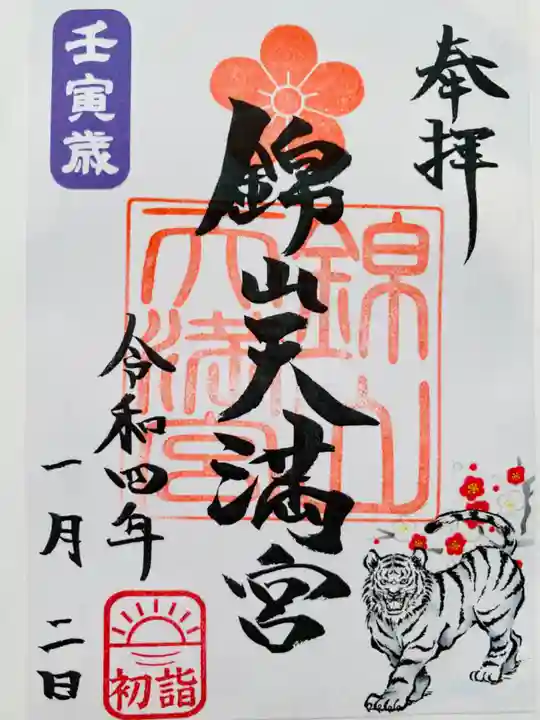 奉拝
錦山天満宮
錦山
天満宮
令和四年
一月二日
壬寅歳
初詣